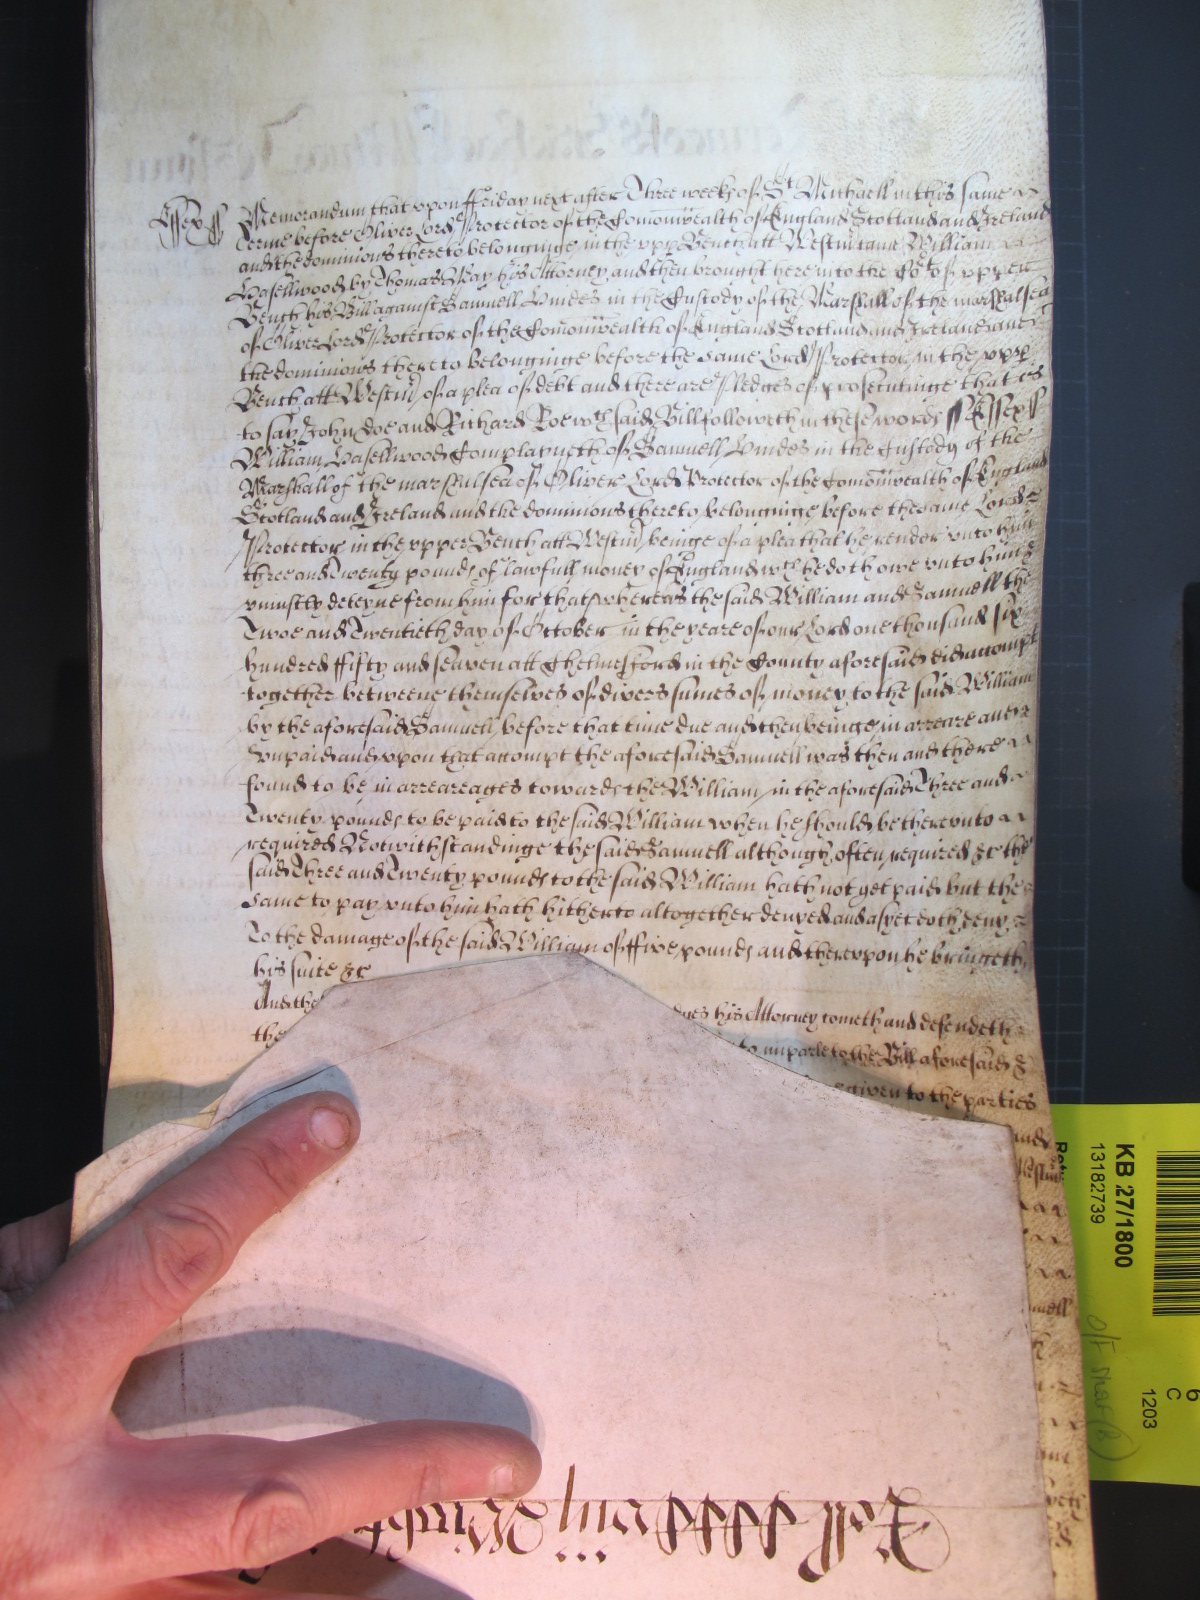 Essex ss Memorandum that upon ffriday next after Three weekes of St Michaell in this same
Terme before Oliver Lord Protector of the Comonwealth of England Scotland and Ireland
and the dominions thereto belonginge in the upp Bench att Westm came William
Hasellwood by Thomas May his Attorney and then brought here into the Cot of upper
Bench his Bill against Samuell Hindes in the Custody of the Marshall of the marshalsea
of Oliver Lord Protector of the Comonwealth of England Scotland and Ireland and
the dominions thereto belonginge before the same Lord Protector in the upp
Bench att Westm of a plea of debt and there are Pledges of prosecutinge that is
to say John Doe and Richard Roe wch said Bill followeth in these words ss Essex ss
William Hasellwood Complayneth of Samuell Hindes in the Custody of the
Marshall of the marshalsea of Oliver Lord Protector of the Comonwealth of England
Scotland and Ireland and the dominions thereto belonginge before the same Lord
Protector in the upper Bench att Westm beinge of a plea that he render unto him
three and Twenty pounds of lawfull money of England wch he doth owe unto him &
uniustly deteyne from him for that whereas the said William and Samuell the
Twoe and Twentieth day of October in the yeare of our Lord one thousand six
hundred ffifty and seaven att Chelmesford in the County aforesaid did accompt
together betweene themselves of divers sumes of money to the said William
by the aforesaid Samuell before that time due and then beinge in arreare and
unpaid and upon that accompt the aforesaid Samuell was then and there
found to be in arrearages towards the William in the aforesaid Three and
Twenty pounds to be paid to the said William when he should be thereunto
required Notwithstandinge the said Samuell although often required &c the
said Three and Twenty pounds to the said William hath not yet paid but the
same to pay unto him hath hitherto altogether denyed and as yet doth deny
To the damage of the said William of ffive pounds and thereupon he bringeth
his suite &c
And the his Attorney cometh and defendeth
the to imparle to the Bill aforesaid &
given to the parties
and
Westm
KB 27/1800
13182739
6
C
1203
Roll
Wright